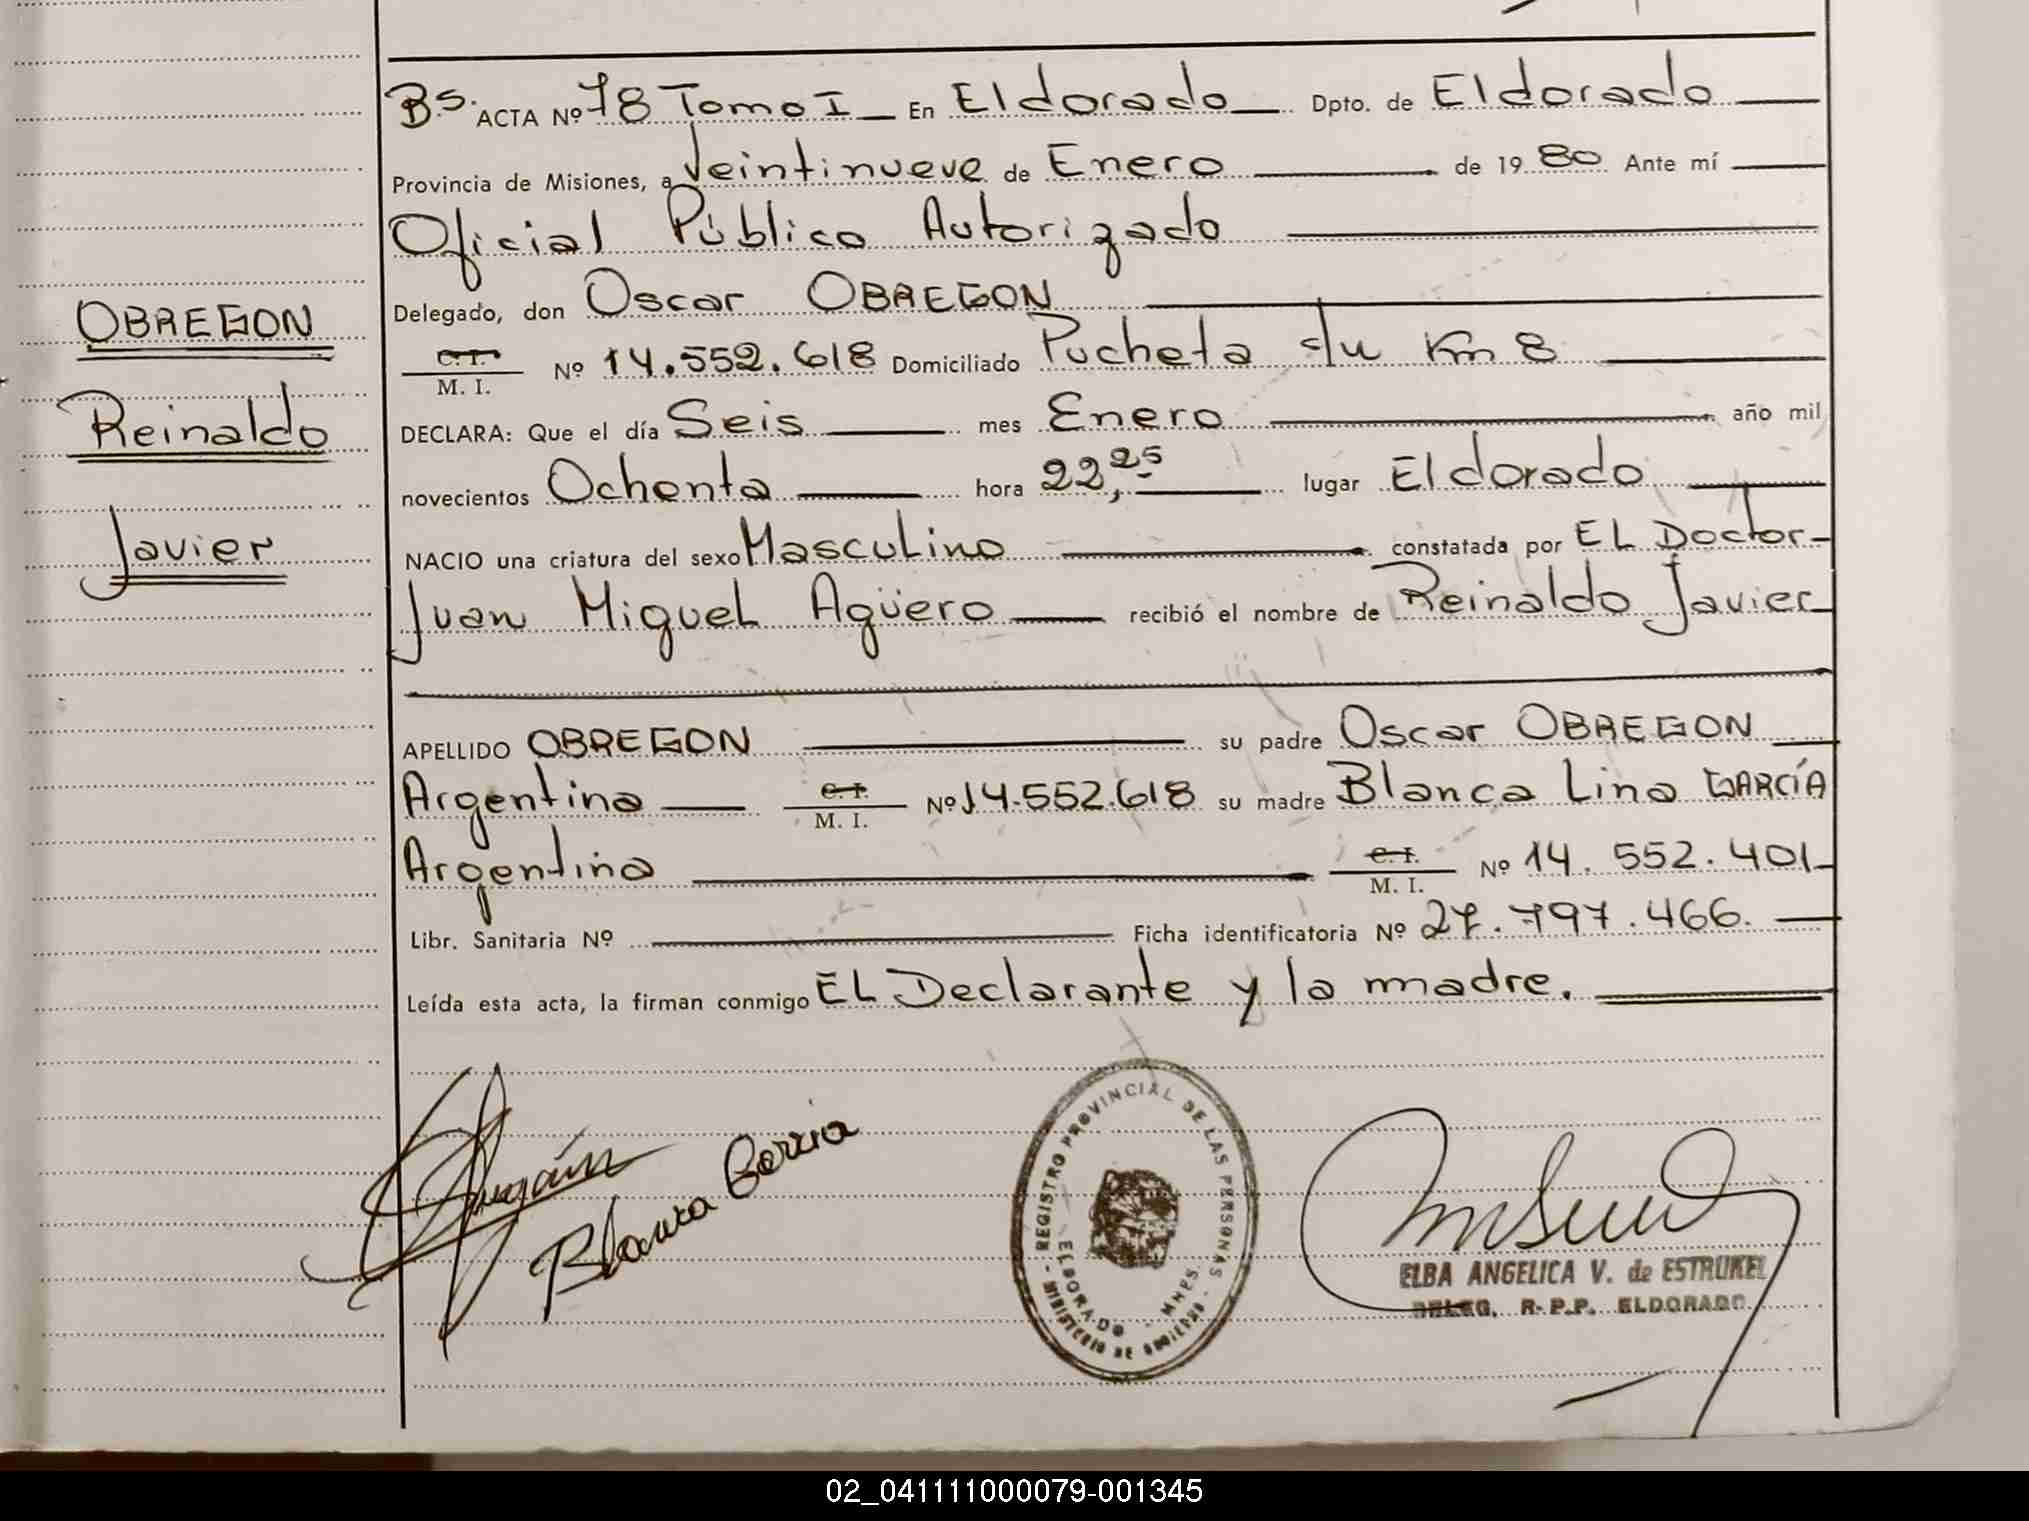 OBREGON
Reinaldo
Javier
Bs. ACTA Nº 78 Tomo I En Eldorado Dpto. de Eldorado
Provincia de Misiones, a Veintinueve de Enero de 1980 Ante mí
Oficial Público Autorizado
Delegado, don Oscar OBREGON
C. I.
M. I. Nº 14.552.618 Domiciliado Pucheta s/u Km 8
DECLARA: Que el día Seis mes Enero año mil
novecientos Ochenta hora 22,25 lugar Eldorado
NACIO una criatura del sexo Masculino constatada por EL Doctor
Juan Miguel Agüero recibió el nombre de Reinaldo Javier
APELLIDO OBREGON su padre Oscar OBREGON
Argentina C. I. M. I. Nº 14.552.618 su madre Blanca Lina GARCÍA
Argentina C. I. M. I. Nº 14.552.401
Libr. Sanitaria Nº Ficha identificatoria Nº 27.797.466.
Leída esta acta, la firman conmigo EL Declarante y la madre.
Blanca Garcia
REGISTRO PROVINCIAL DE LAS PERSONAS - MINISTERIO DE
ELDORADO - MNES.
ELBA ANGELICA V. de ESTRUKEL
DELEG. R.P.P. ELDORADO
02_041111000079-001345